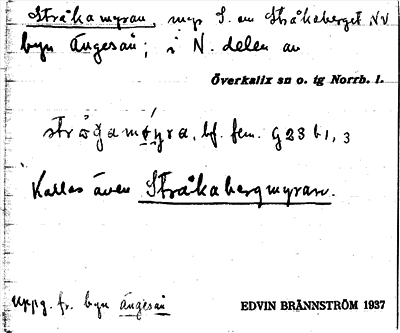 Stråkamyran, myr S. om Stråkaberget NV
byn Ängesån; i N. delen av
Överkalix sn o. tg Norrb. l.
strå̀gamýra, bf. fem. G23 b1, 3
Kallas även Stråkabergmyran.
Uppg. fr. byn Ängesån
EDVIN BRÄNNSTRÖM 1937